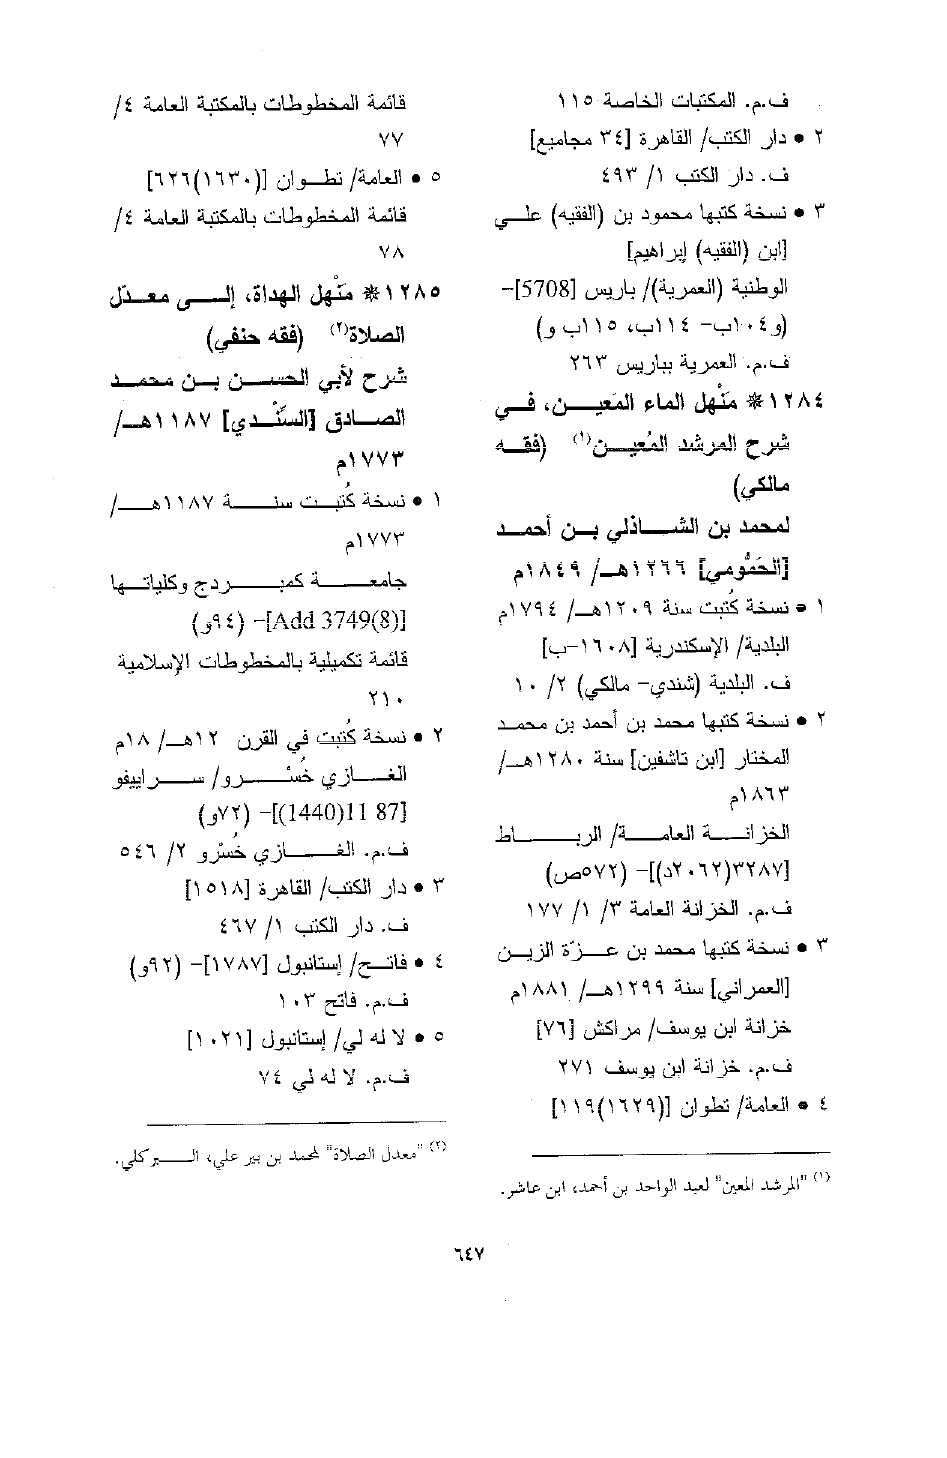 ف.م. المكتبات الخاصة ١١٥
٢ • دار الكتب/ القاهرة [٣٤ مجاميع]
ف. دار الكتب ١/ ٤٩٣
٣ • نسخة كتبها محمود بن (الفقيه) علي
[ابن (الفقيه) إبراهيم]
الوطنية (العمرية)/ باريس [5708]-
(و١٠٤ب- ١١٤ب، ١١٥ب و)
ف.م. العمرية بباريس ٢٦٣
١٢٨٤* مَنْهل الماء المَعيـن، في
شرح المرشد المُعيـن(١) (فقـه
مالكي)
لمحمد بن الشـاذلي بـن أحمـد
[الحَمُّومي] ١٢٦٦هـ/ ١٨٤٩م
١ • نسخة كُتبت سنة ١٢٠٩هـ/ ١٧٩٤م
البلدية/ الإسكندرية [١٦٠٨-ب]
ف. البلدية (شندي- مالكي) ٢/ ١٠
٢ • نسخة كتبها محمد بن أحمد بن محمـد
المختار [ابن تاشفين] سنة ١٢٨٠هـ/
١٨٦٣م
الخزانـة العامـة/ الربـاط
[٣٢٨٧(٢٠٦٢د)]- (٥٧٢ص)
ف.م. الخزانة العامة ٣/ ١/ ١٧٧
٣ • نسخة كتبها محمد بن عـزّة الزيـن
[العمراني] سنة ١٢٩٩هـ/ ١٨٨١م
خزانة ابن يوسف/ مراكش [٧٦]
ف.م. خزانة ابن يوسف ٢٧١
٤ • العامة/ تطوان [(١٦٢٩)١١٩]
(١) "المرشد المعين" لعبد الواحد بن أحمد، ابن عاشر.
قائمة المخطوطات بالمكتبة العامة ٤/
٧٧
٥ • العامة/ تطـوان [(١٦٣٠)٦٢٦]
قائمة المخطوطات بالمكتبة العامة ٤/
٧٨
١٢٨٥* مَنْهل الهداة، إلـى معـدّل
الصلاة(٢) (فقه حنفي)
شرح لأبي الحسـن بـن محمـد
الصـادق [السِّنْـدي] ١١٨٧هـ/
١٧٧٣م
١ • نسخة كُتبـت سنـة ١١٨٧هـ/
١٧٧٣م
جامعـة كمبـردج وكلياتـها
[Add 3749(8)]- (٩٤و)
قائمة تكميلية بالمخطوطات الإسلامية
٢١٠
٢ • نسخة كُتبت في القرن ١٢هـ/ ١٨م
الغـازي خُسْـرو/ سـراييفو
[87 11(1440)]- (٧٢و)
ف.م. الغـازي خُسْرو ٢/ ٥٤٦
٣ • دار الكتب/ القاهرة [١٥١٨]
ف. دار الكتب ١/ ٤٦٧
٤ • فاتـح/ إستانبول [١٧٨٧]- (٩٢و)
ف.م. فاتح ١٠٣
٥ • لا له لي/ إستانبول [١٠٢١]
ف.م. لا له لي ٧٤
(٢) "معدل الصلاة" لمحمد بن بير علي، البـركلي.
٦٤٧